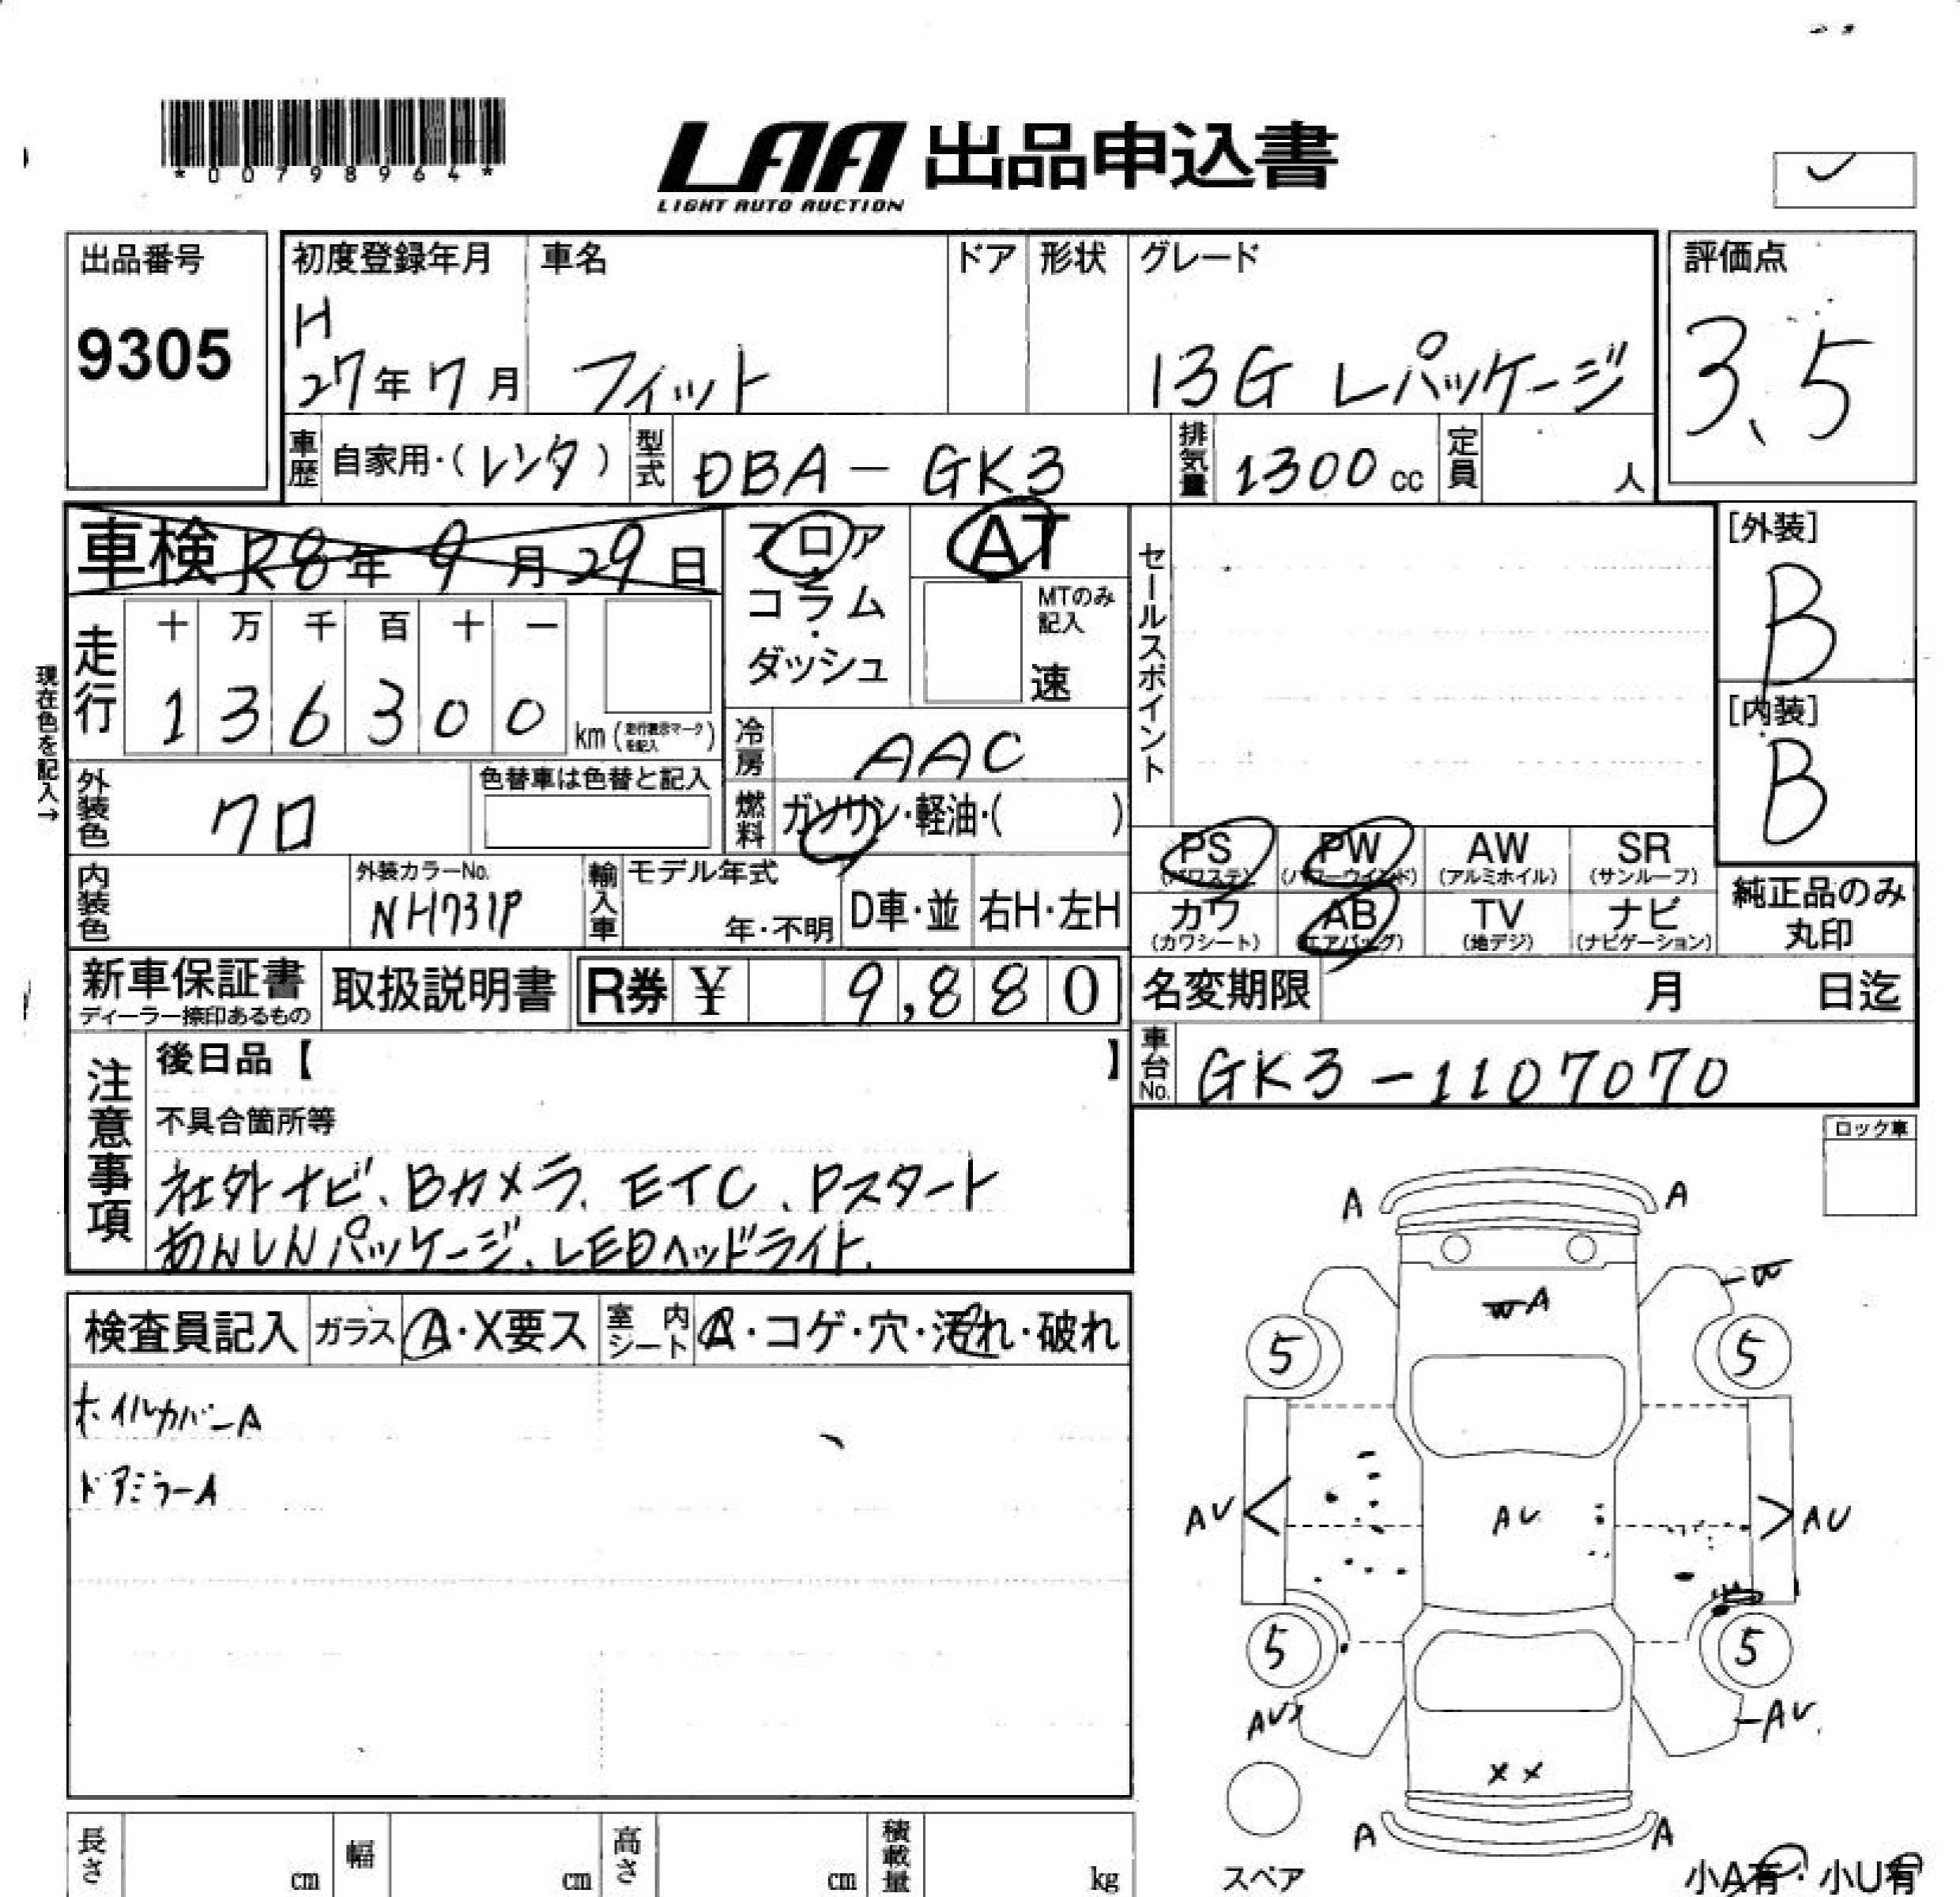 *00798964*
LAA 出品申込書
LIGHT AUTO AUCTION
出品番号
9305
初度登録年月
H
27年7月
車名
フィット
ドア
形状
グレード
13G Lパッケージ
評価点
3.5
車歴
自家用・(レンタ)
型式
DBA-GK3
排気量
1300cc
定員
人
車検 R8年9月29日
フロア
コラム
・
ダッシュ
AT
MTのみ
記入
速
セールスポイント
[外装]
B
[内装]
B
現在色を記入→
走行
十 万 千 百 十 一
1 3 6 3 0 0
km(走行表示マークを記入)
冷房
AAC
外装色
クロ
色替車は色替と記入
燃料
ガソリン・軽油・( )
PS
(パワステ)
PW
(パワーウインド)
AW
(アルミホイル)
SR
(サンルーフ)
内装色
外装カラーNo.
NH731P
輸入車
モデル年式
年・不明
D車・並
右H・左H
カワ
(カワシート)
AB
(エアバッグ)
TV
(地デジ)
ナビ
(ナビゲーション)
純正品のみ
丸印
新車保証書
ディーラー捺印あるもの
取扱説明書
R券 ¥ 9,880
名変期限
月 日迄
車台No.
GK3-1107070
注意事項
後日品【 】
不具合箇所等
社外ナビ、Bカメラ、ETC、Pスタート
あんしんパッケージ、LEDヘッドライト、
ロック車
検査員記入
ガラス
A・X要ス
室内シート
A・コゲ・穴・汚れ・破れ
ホイルカバーA
ドアミラーA
A A
W
WA
5 5
AV AV AV
5 5
AV AV
XX
A A
スペア
小A有・小U有
長さ
cm
幅
cm
高さ
cm
積載量
kg